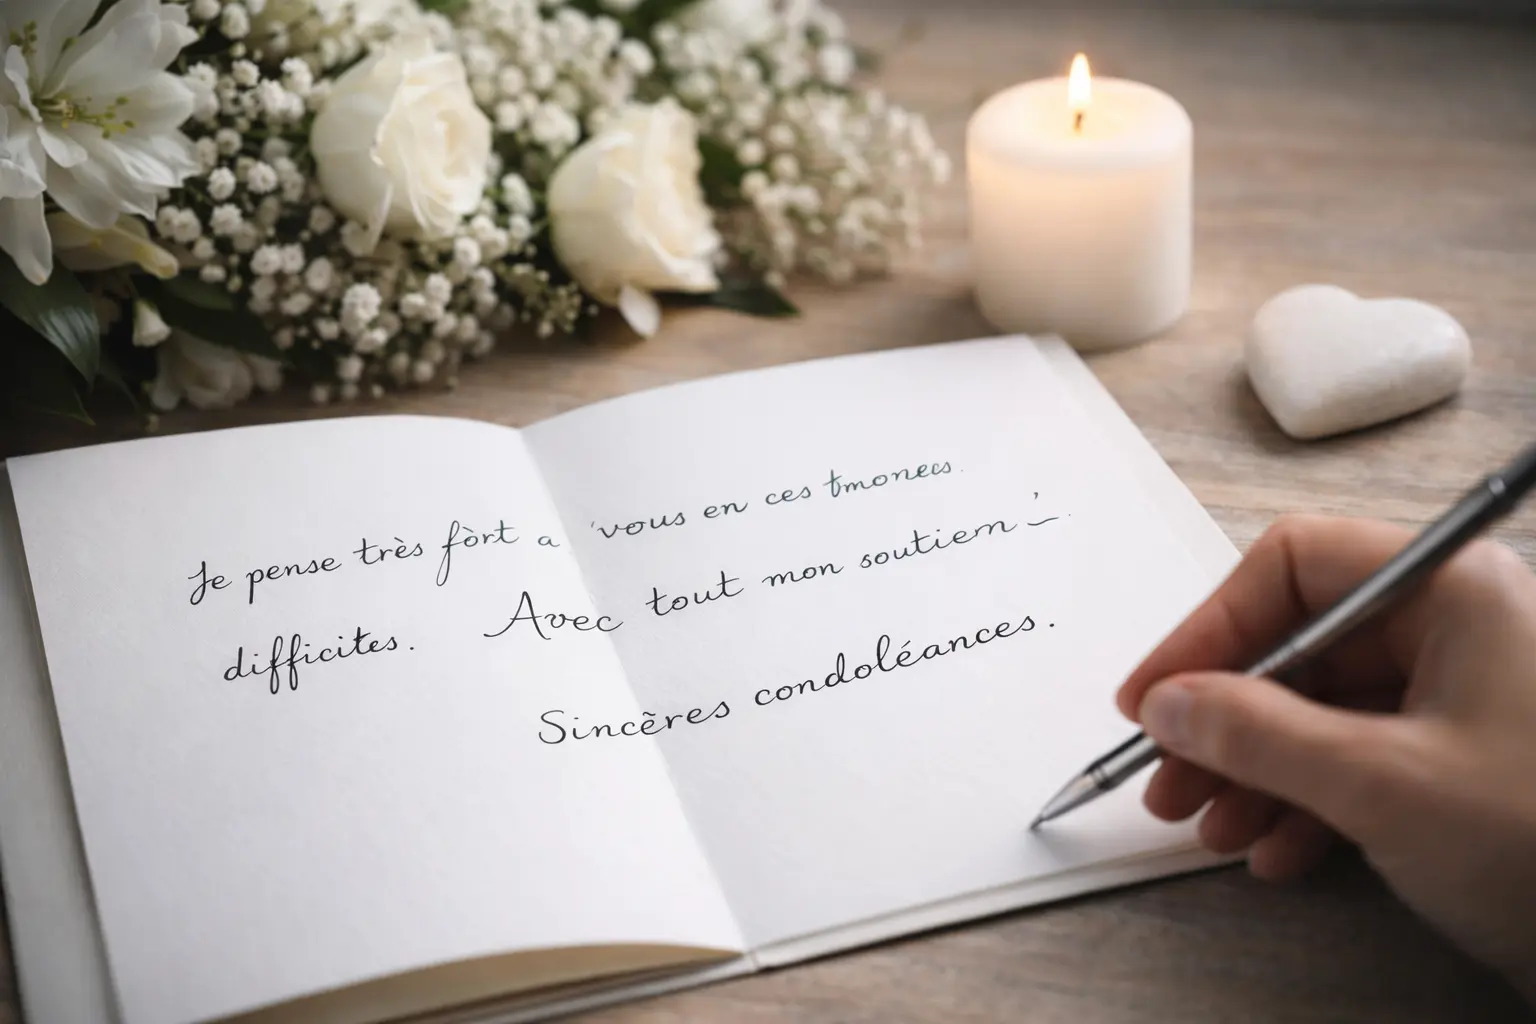 Je pense très fòrt a vous en ces tmonecs.
difficites. Avec tout mon soutiem
Sincẽres condoléances.